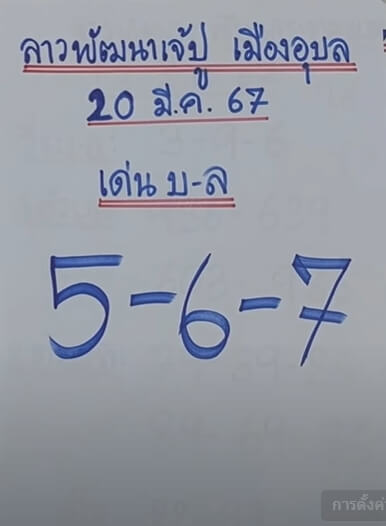 ลาวพัฒนาเจ้ปู เมืองอุบล
20 มี.ค. 67
เด่น บ-ล
5-6-7
การตั้งค่